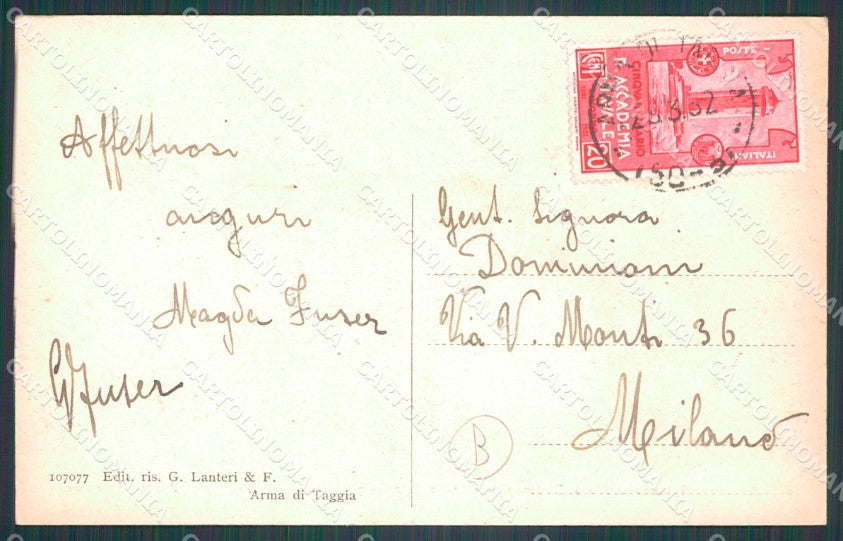 Affettuosi
auguri
Magda Fuser
G Fuser
107077 Edit. ris. G. Lanteri & F.
Arma di Taggia
POSTE
ITALIANE
CINQVANTENARIO
R. ACCADEMIA
NAVALE
CENT 20
28.3.32
Gent. Signora
Dominioni
Via V. Monti 36
Milano
B
CARTOLINOMANIA